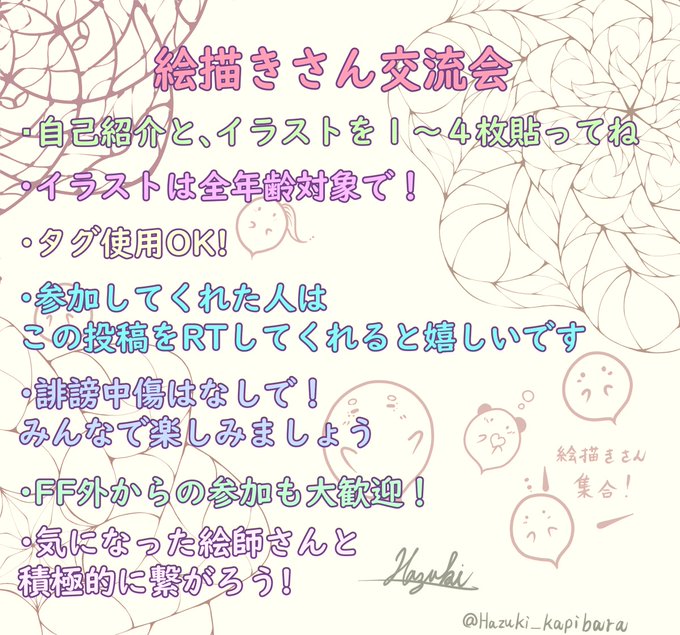 絵描きさん交流会
・自己紹介と、イラストを１〜４枚貼ってね
・イラストは全年齢対象で！
・タグ使用OK!
・参加してくれた人は
この投稿をRTしてくれると嬉しいです
・誹謗中傷はなしで！
みんなで楽しみましょう
絵描きさん
集合！
・FF外からの参加も大歓迎！
・気になった絵師さんと
積極的に繋がろう!
Hazuki
@Hazuki_kapibara